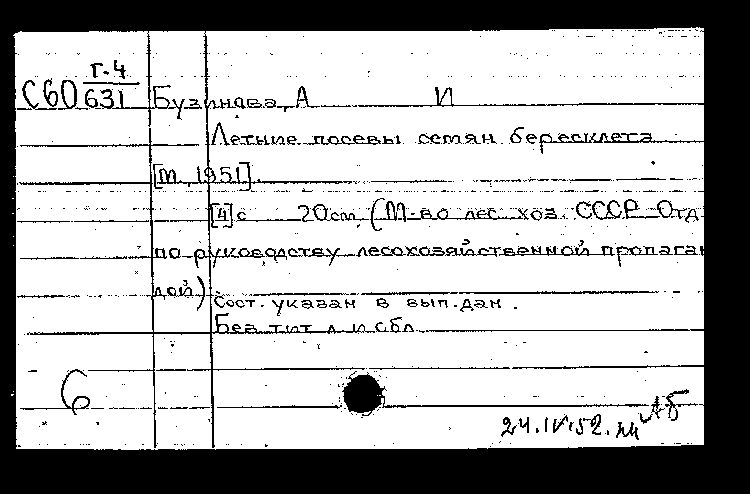 Г-4
С60 631 Бузинова, А И
Летние посевы семян бересклета
[М, 1951].
[4] с 20см (М-во лес. хоз. СССР Отд
по руководству лесохозяйственной пропаган
дой)
Сост. указан в вып. дан.
Без тит л и обл
6
24.IV.52.